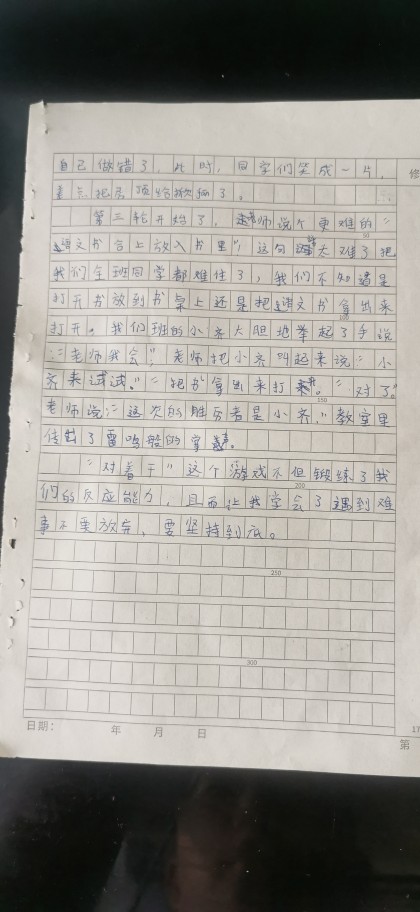 自己做错了，此时，同学们笑成一片，
差点把房顶给掀翻了。
第三轮开始了，老师说个更难的“
语文书合上放入书里”，这句话太难了把
50
我们全班同学都难住了，我们不知道是
打开书放到书桌上还是把语文书拿出来
打开。我们班的小齐大胆地举起了手说
100
：“老师我会”，老师把小齐叫起来说：“小
齐来试试。”“把书拿出来打开。”“对了。”
150
老师说：“这次的胜历者是小齐”，教室里
传出了雷鸣般的掌声。
“对着干”这个游戏不但锻练了我
200
们的反应能力，且而让我学会了遇到难
事不要放弃，要坚持到底。
250
300
日期： 年 月 日
第
17